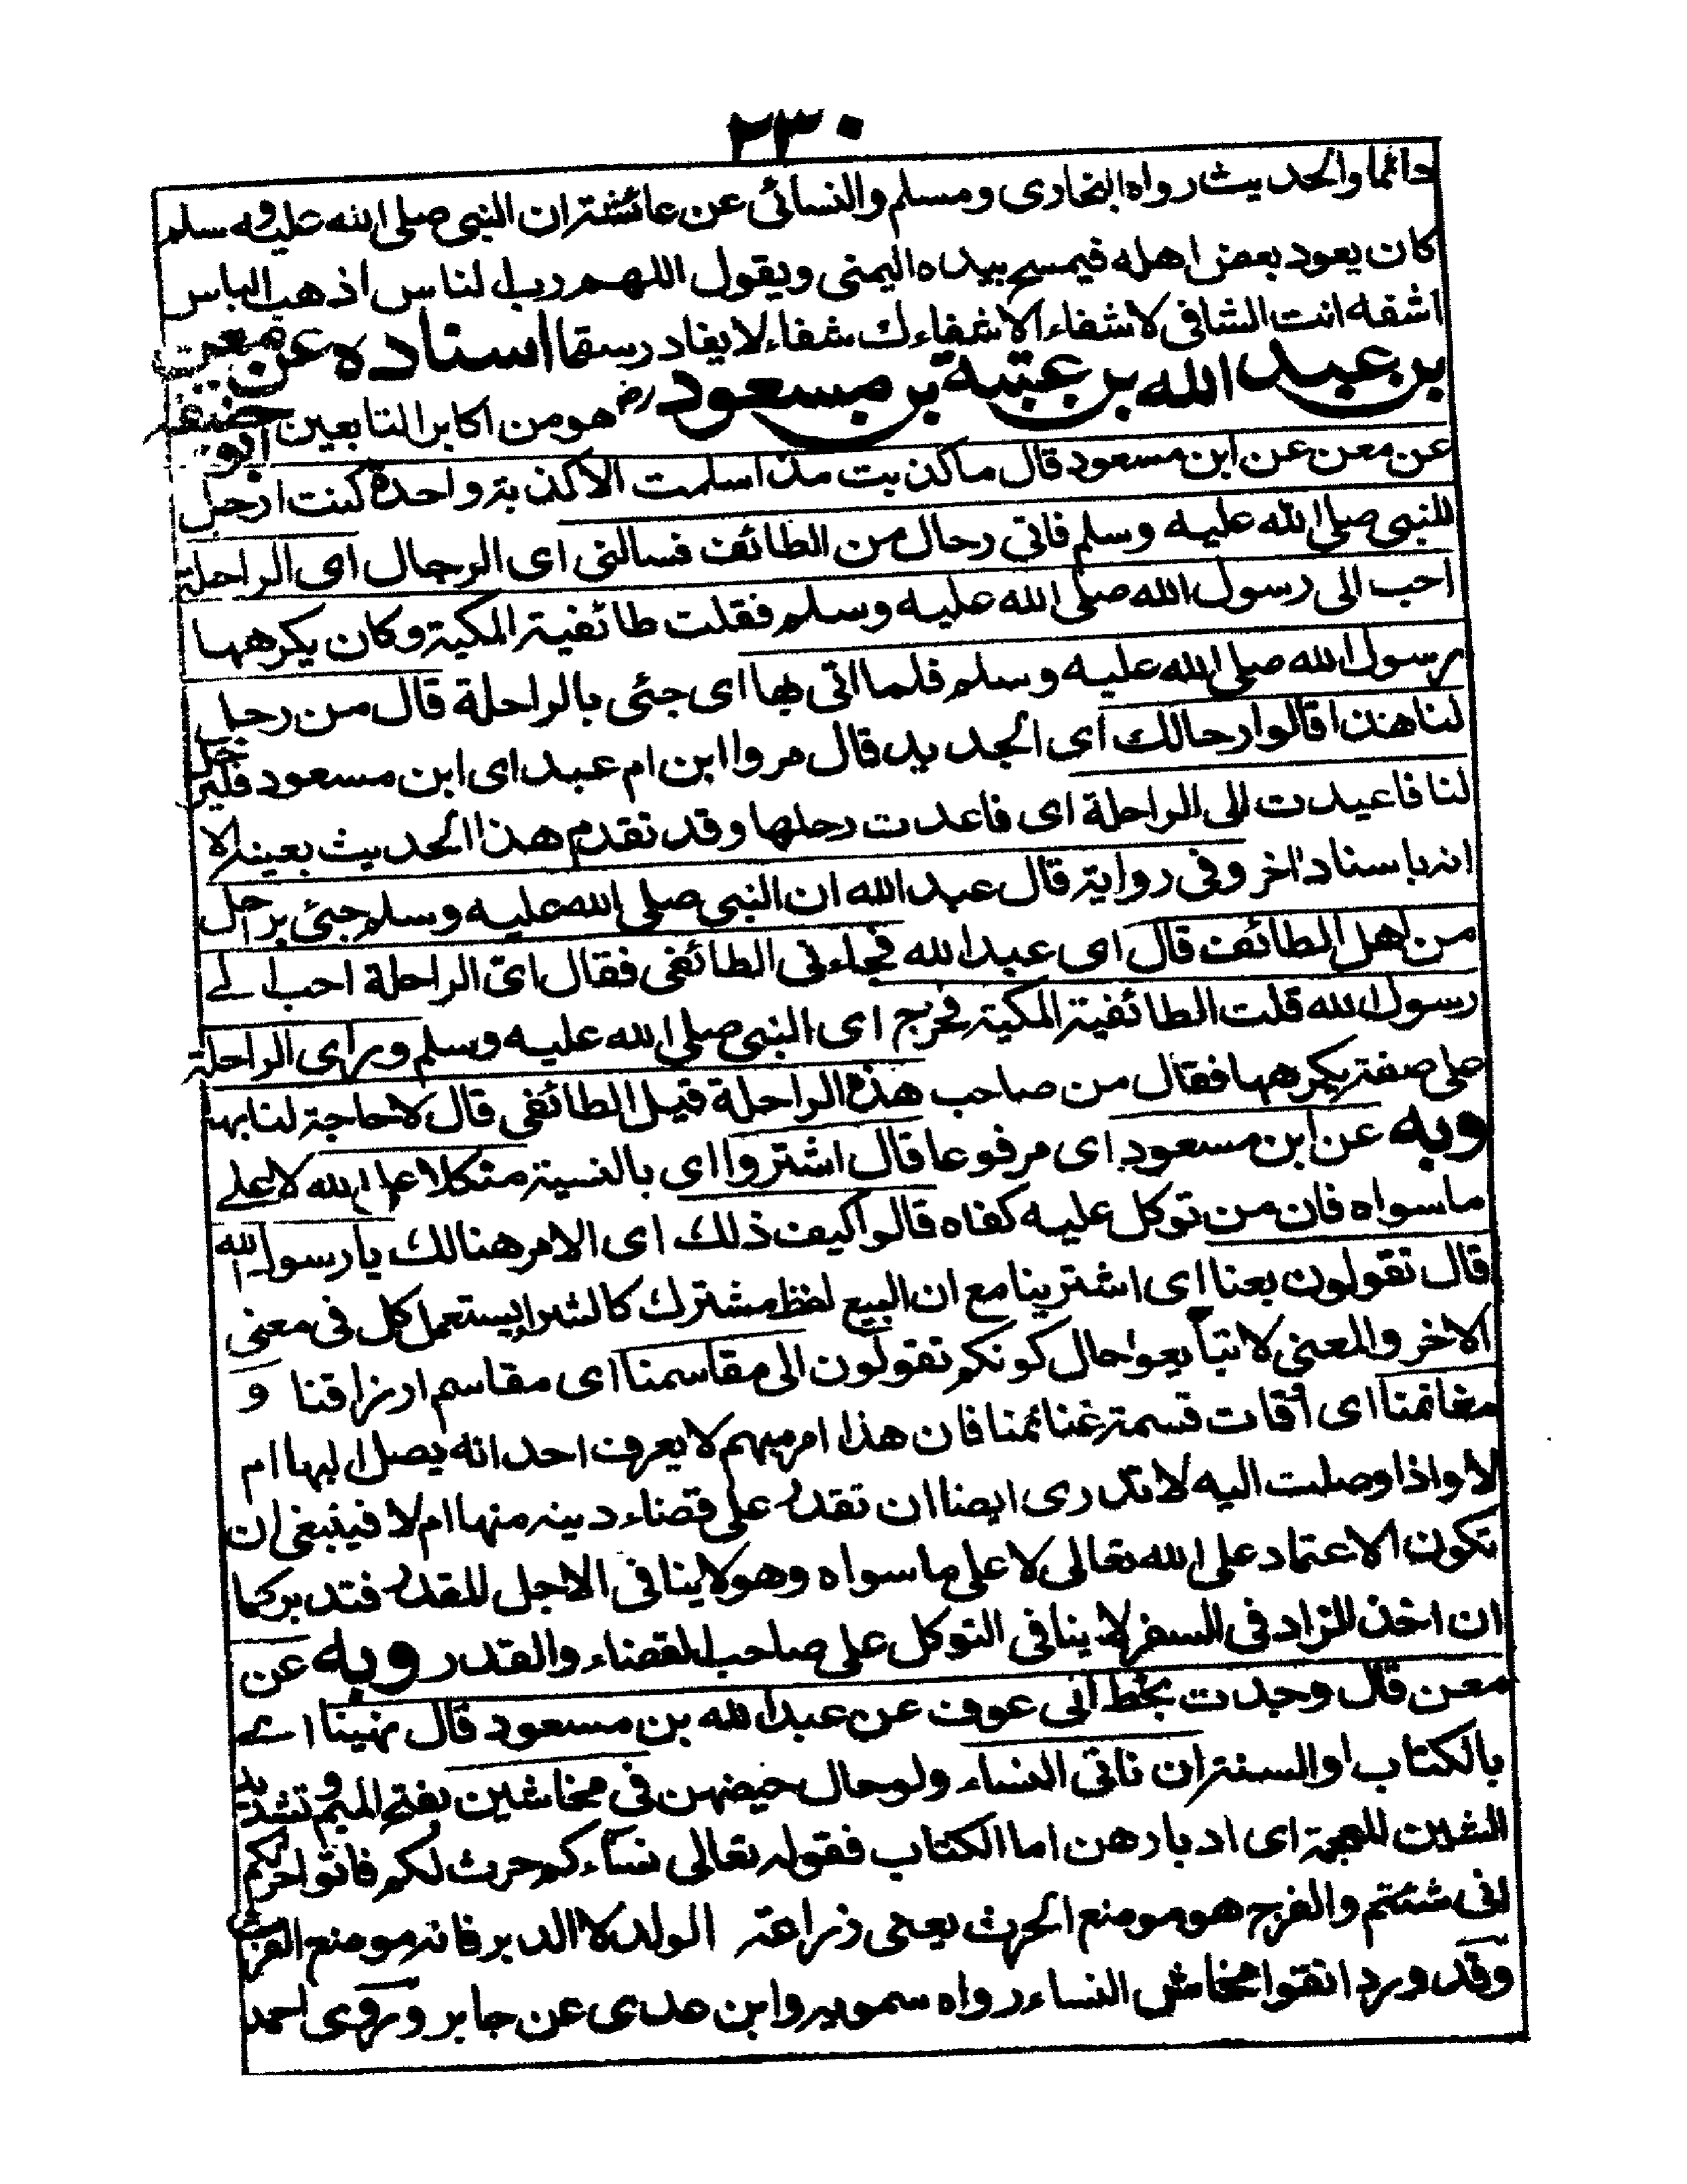 ٢٣٠
دائما والحديث رواه البخارى ومسلم والنسائى عن عائشة ان النبى صلى الله عليه وسلم
كان يعود بعض اهله فيمسح بيده اليمنى ويقول اللهم رب الناس اذهب الباس
اشفه انت الشافى لا شفاء الا شفاءك شفاء لا يغادر سقما اسناده عن معن
بن عبد الله بن عتبة بن مسعود رض هو من اكابر التابعين ابو حنيفة
عن معن عن ابن مسعود قال ما كذبت مذ اسلمت الا كذبة واحدة كنت ارحل
للنبى صلى الله عليه وسلم فاتى رحال من الطائف فسالنى اى الرحال اى الراحلة
احب الى رسول الله صلى الله عليه وسلم فقلت طائفية المكية وكان يكرهها
رسول الله صلى الله عليه وسلم فلما اتى بها اى جئى بالراحلة قال من رحل
لنا هذا قالوا رحالك اى الجديد قال مروا ابن ام عبد اى ابن مسعود فليرحل
لنا فاعيدت الى الراحلة اى فاعدت رحلها وقد تقدم هذا الحديث بعينه الا
انه باسناد اخر وفى رواية قال عبد الله ان النبى صلى الله عليه وسلم جئ برحل
من اهل الطائف قال اى عبد الله فجاءنى الطائفى فقال اى الراحلة احب الے
رسول الله قلت الطائفية المكية فخرج اى النبى صلى الله عليه وسلم وراى الراحلة
على صفة يكرهها فقال من صاحب هذه الراحلة قيل الطائفى قال لا حاجة لنا بها
وبه عن ابن مسعود اى مرفوعا قال اشتروا اى بالنسية متكلا على الله لا على
ما سواه فان من توكل عليه كفاه قالوا كيف ذلك اى الامر هنالك يا رسول الله
قال تقولون بعنا اى اشترينا مع ان البيع لفظ مشترك كالشراء يستعمل كل فى معنى
الاخر والمعنى لا تبايعوا حال كونكم تقولون الى مقاسمنا اى مقاسم ارزاقنا و
مغانمنا اى اوقات قسمة غنائمنا فان هذا امر مبهم لا يعرف احد انه يصل اليها ام
لا واذا وصلت اليه لا تدرى ايضا ان تقدر على قضاء دينه منها ام لا فينبغى ان
تكون الاعتماد على الله تعالى لا على ما سواه وهو لا ينافى الاجل المقدر فتدبر كما
ان اخذ الزاد فى السفر لا ينافى التوكل على صاحب القضاء والقدر وبه عن
معن قال وجدت بخط ابى عوف عن عبد الله بن مسعود قال نهينا اے
بالكتاب او السنة ان ناتى النساء ولو حال حيضهن فى محاشين بفتح الميم وتشديد
الشين المعجمة اى ادبارهن اما الكتاب فقوله تعالى نساءكم حرث لكم فاتوا حرثكم
انى شئتم والفرج هو موضع الحرث يعنى زراعة الولد لا الدبر فانه موضع الفرث
وقد ورد اتقوا محاش النساء رواه سمويه وابن عدى عن جابر وروى احمد